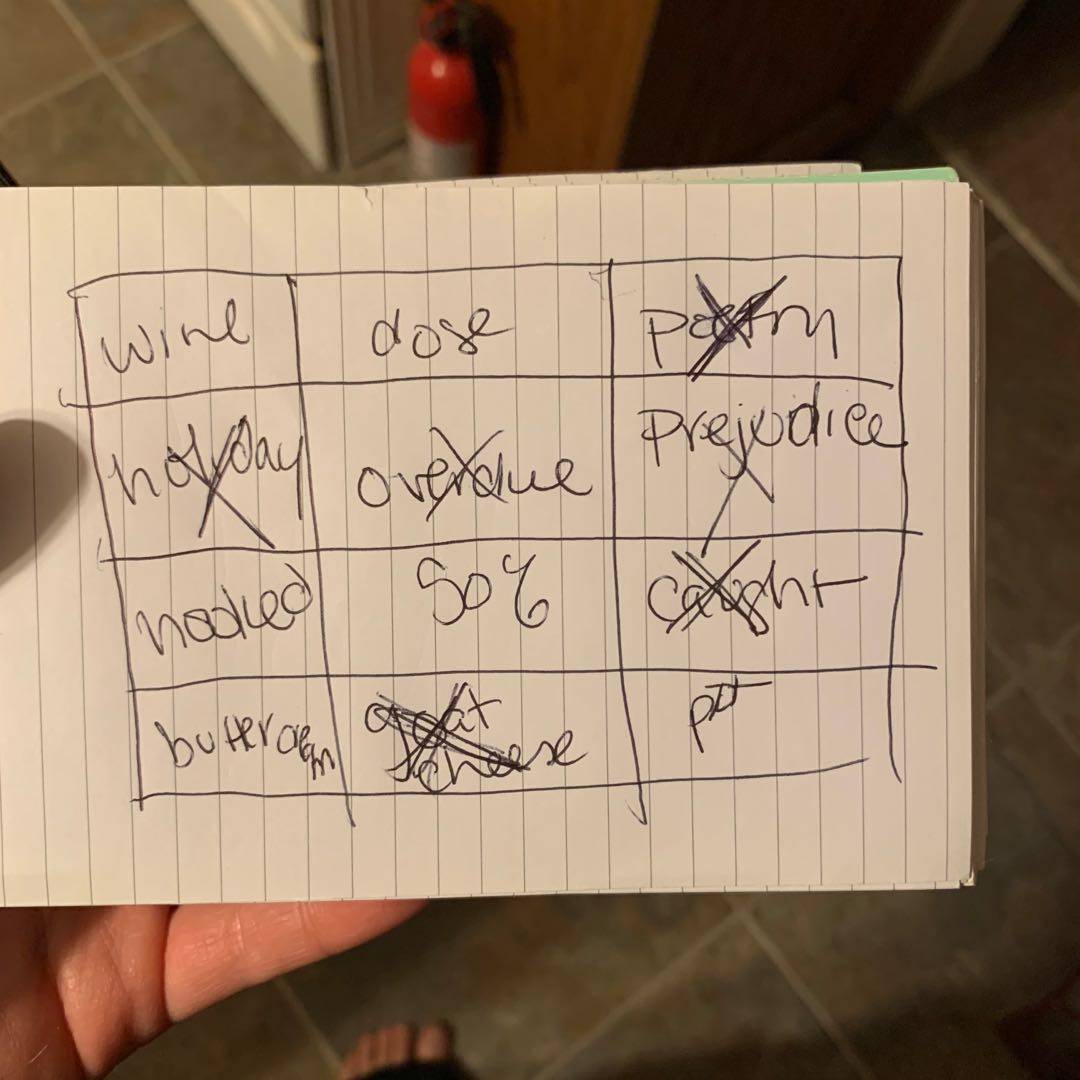 wine dose pastry
holiday overdue prejudice
hooked soy caught
buttercream goat
cheese